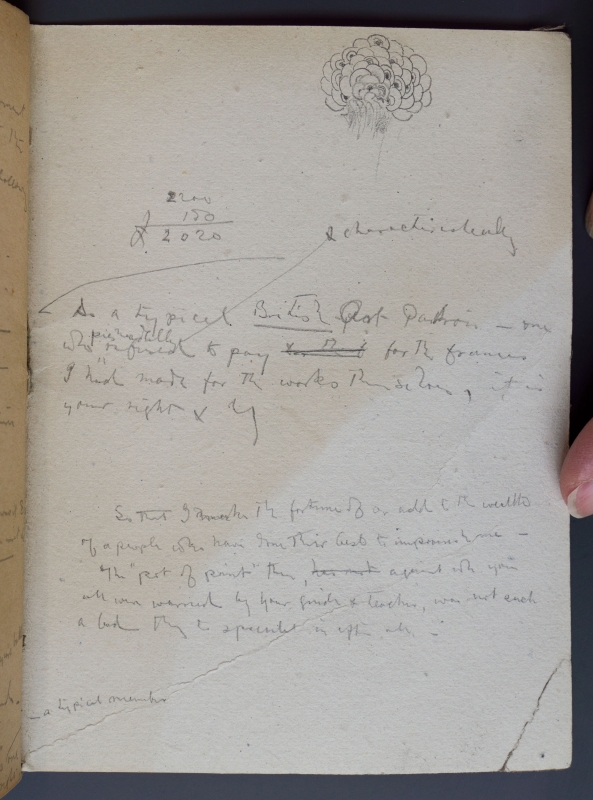 2200
150
2020
& characteristically
As a typical British Art Patron — one
piously
who refused to pay for the frames
I had made for the works themselves, it is
your right &
So that I the fortunes of or add to the wealth
of a people who have done their best to impoverish me —
The "pot of paint" then, has not against wh you
all were warned by your guide & teacher, was not such
a bad thing to speculate in after all —
— a typical member